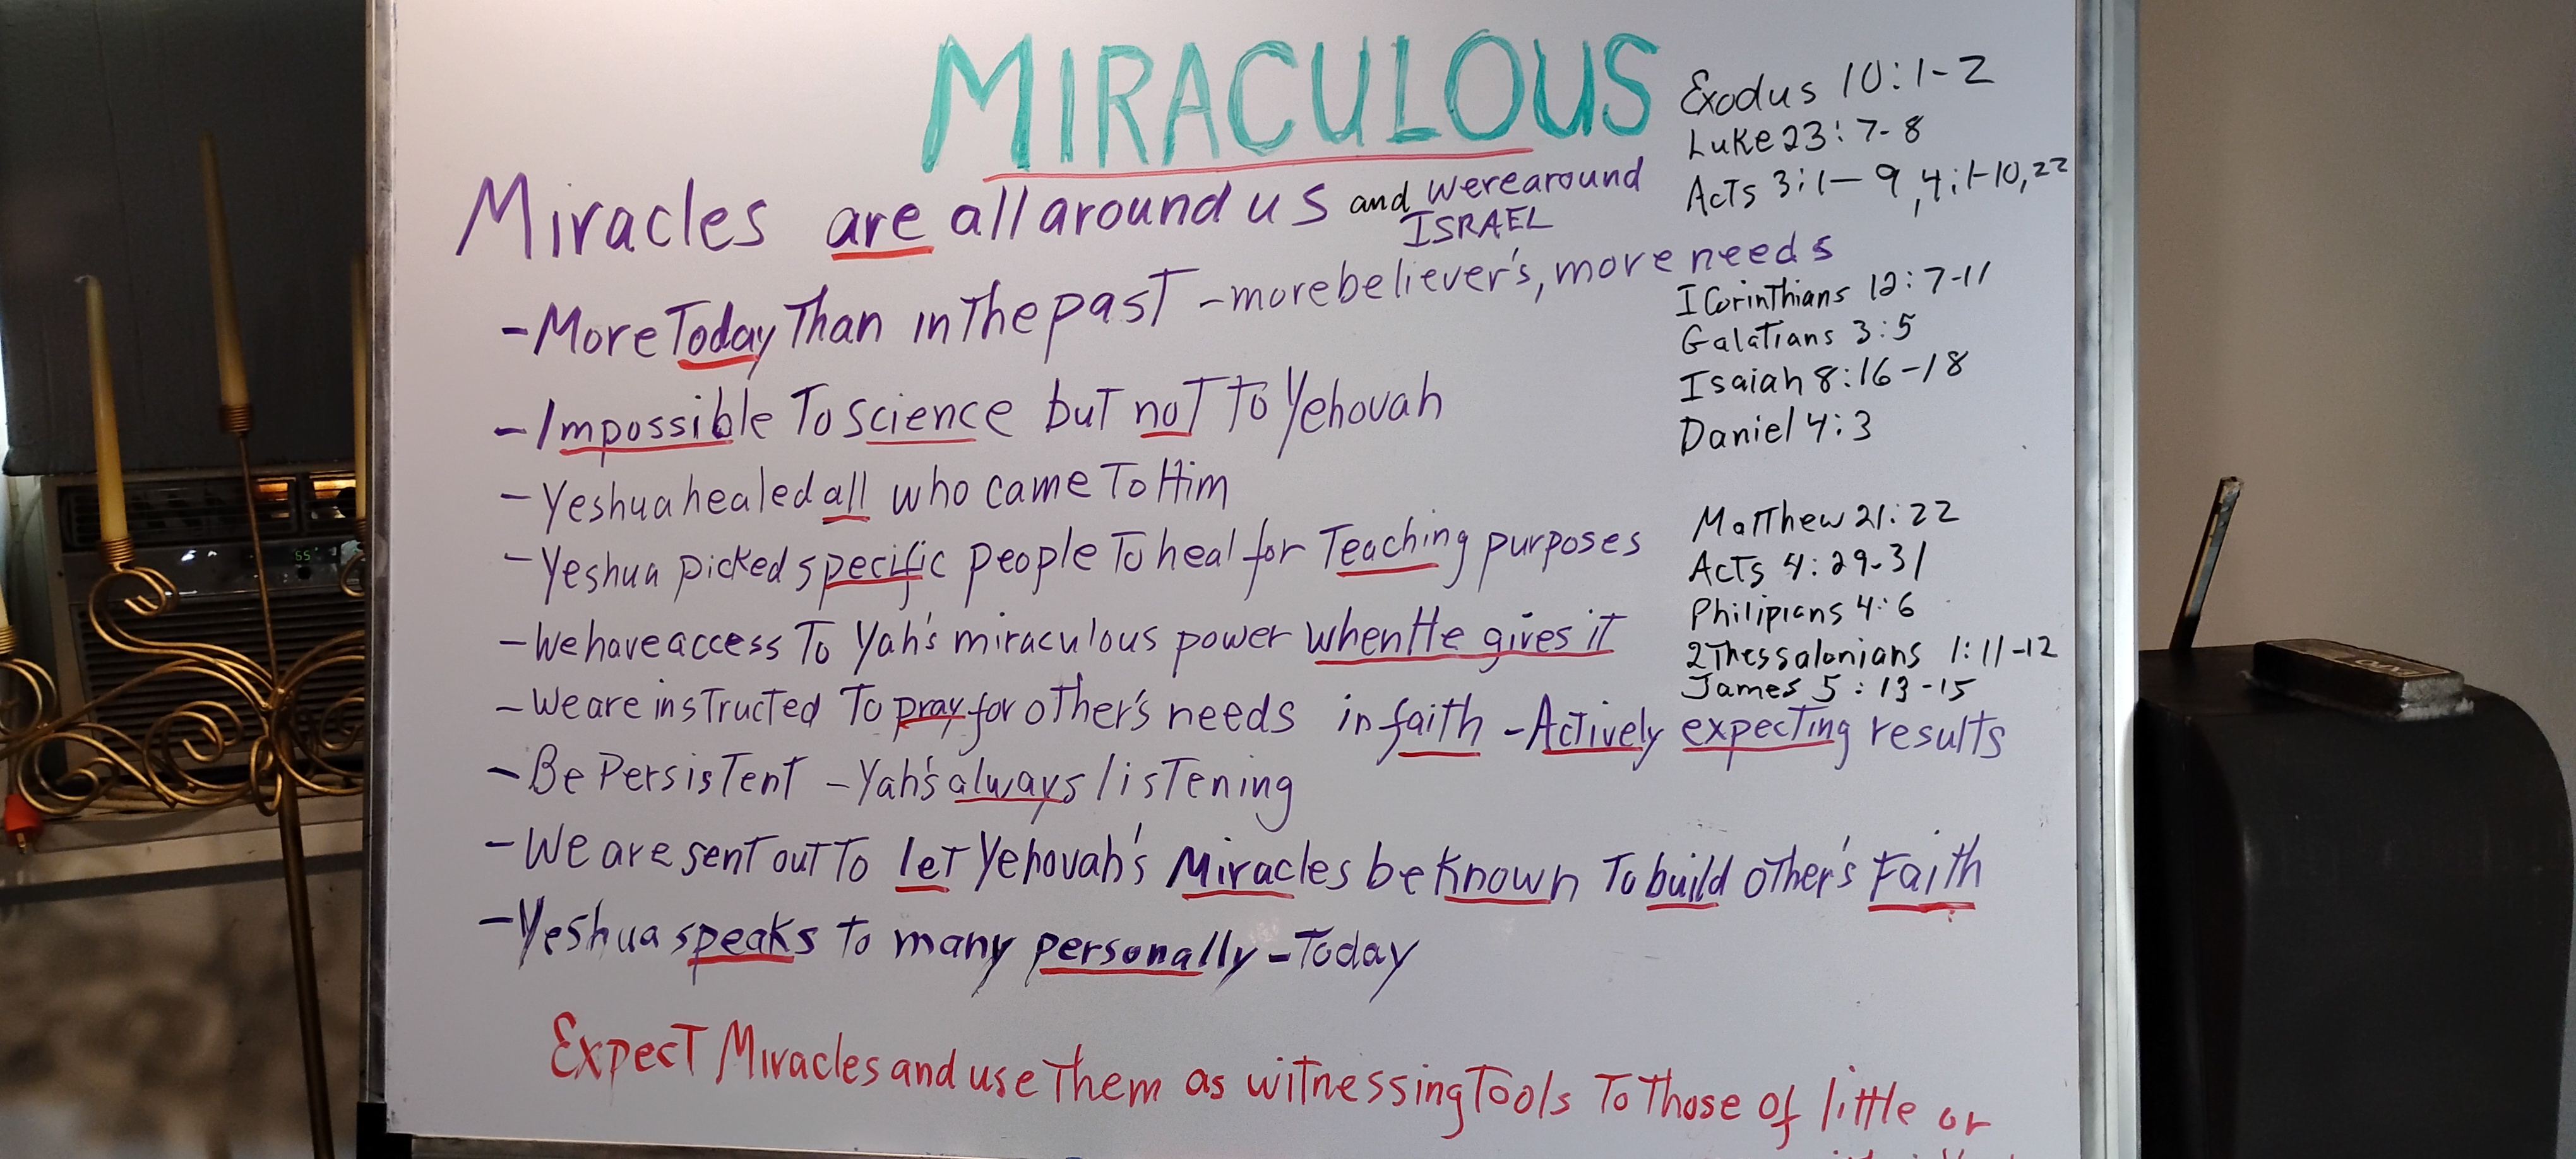 MIRACULOUS
Miracles are all around us and were around
ISRAEL
- More Today Than in The past - more believer's, more needs
- Impossible To science but not To Yehovah
- Yeshua healed all who came To Him
- Yeshua picked specific people To heal for Teaching purposes
- We have access To Yah's miraculous power when He gives it
- We are instructed To pray for other's needs in faith - Actively expecting results
- Be Persistent - Yah's always listening
- We are sent out To let Yehovah's Miracles be known To build other's Faith
- Yeshua speaks to many personally - Today
Expect Miracles and use Them as witnessing Tools To Those of little or
Exodus 10:1-2
Luke 23:7-8
Acts 3:1-9, 4:1-10,22
I Corinthians 12:7-11
Galatians 3:5
Isaiah 8:16-18
Daniel 4:3
Matthew 21:22
Acts 4:29-31
Philipians 4:6
2 Thessalonians 1:11-12
James 5:13-15